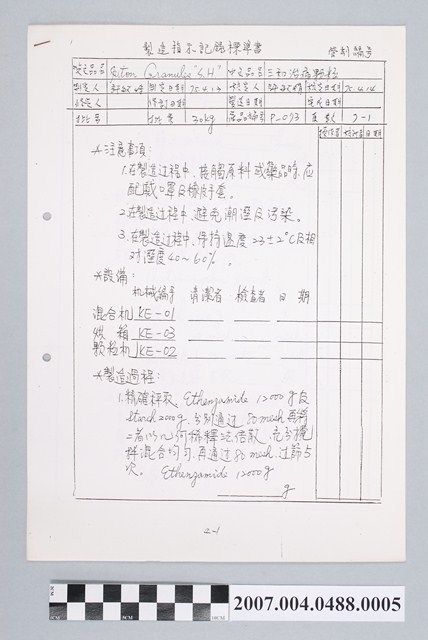 製造指示記錄標準書 管制編号
英文品名 Riton Granules "S.H" 中文品名 三和治痛顆粒
制定人 制定日期 75.4.14 核定人 核定日期 75.4.14
修定人 修定日期 製造日期 完成日期
批号 批量 30kg 藥品編号 P-073 頁数 7-1
操作者 核对者 日期
*注意事項:
1.在製造过程中,接觸原料或藥品時,应
配戴口罩及橡皮手套。
2.在製造过程中,避免潮溼及污染。
3.在製造过程中,保持溫度23±2°C及相
对溼度40~60%。
*設備:
机械編号 清潔者 檢查者 日期
混合机 KE-01
烘箱 KE-03
顆粒机 KE-02
*製造過程:
1.精確秤取 Ethenzamide 12000g及
starch 2000g,分別通过 80 mesh 再將
二者以几何稀釋法倍散,充分攪
拌混合均勻,再通过80 mesh,过篩5
次。 Ethenzamide 12000g
g
2-1
2007.004.0488.0005